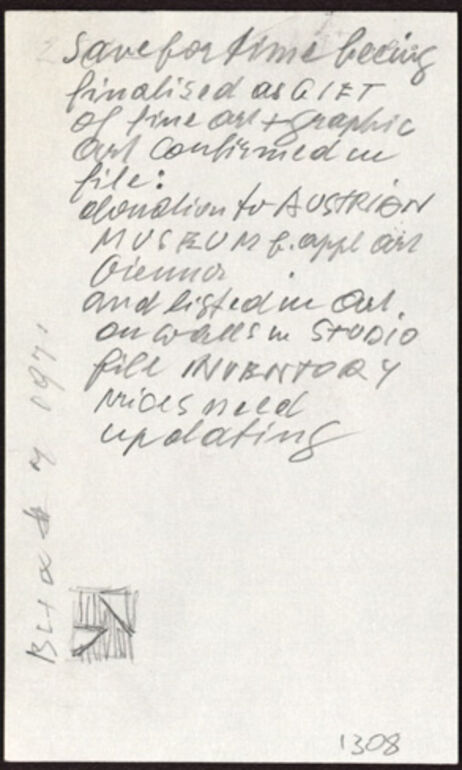 Save for time being
finalised as GIFT
of fine art + graphic
art confirmed in
file:
donation to AUSTRIAN
MUSEUM f. appl art
Vienna
and listed in art.
on walls in STUDIO
file INVENTORY
prices need
updating
1308